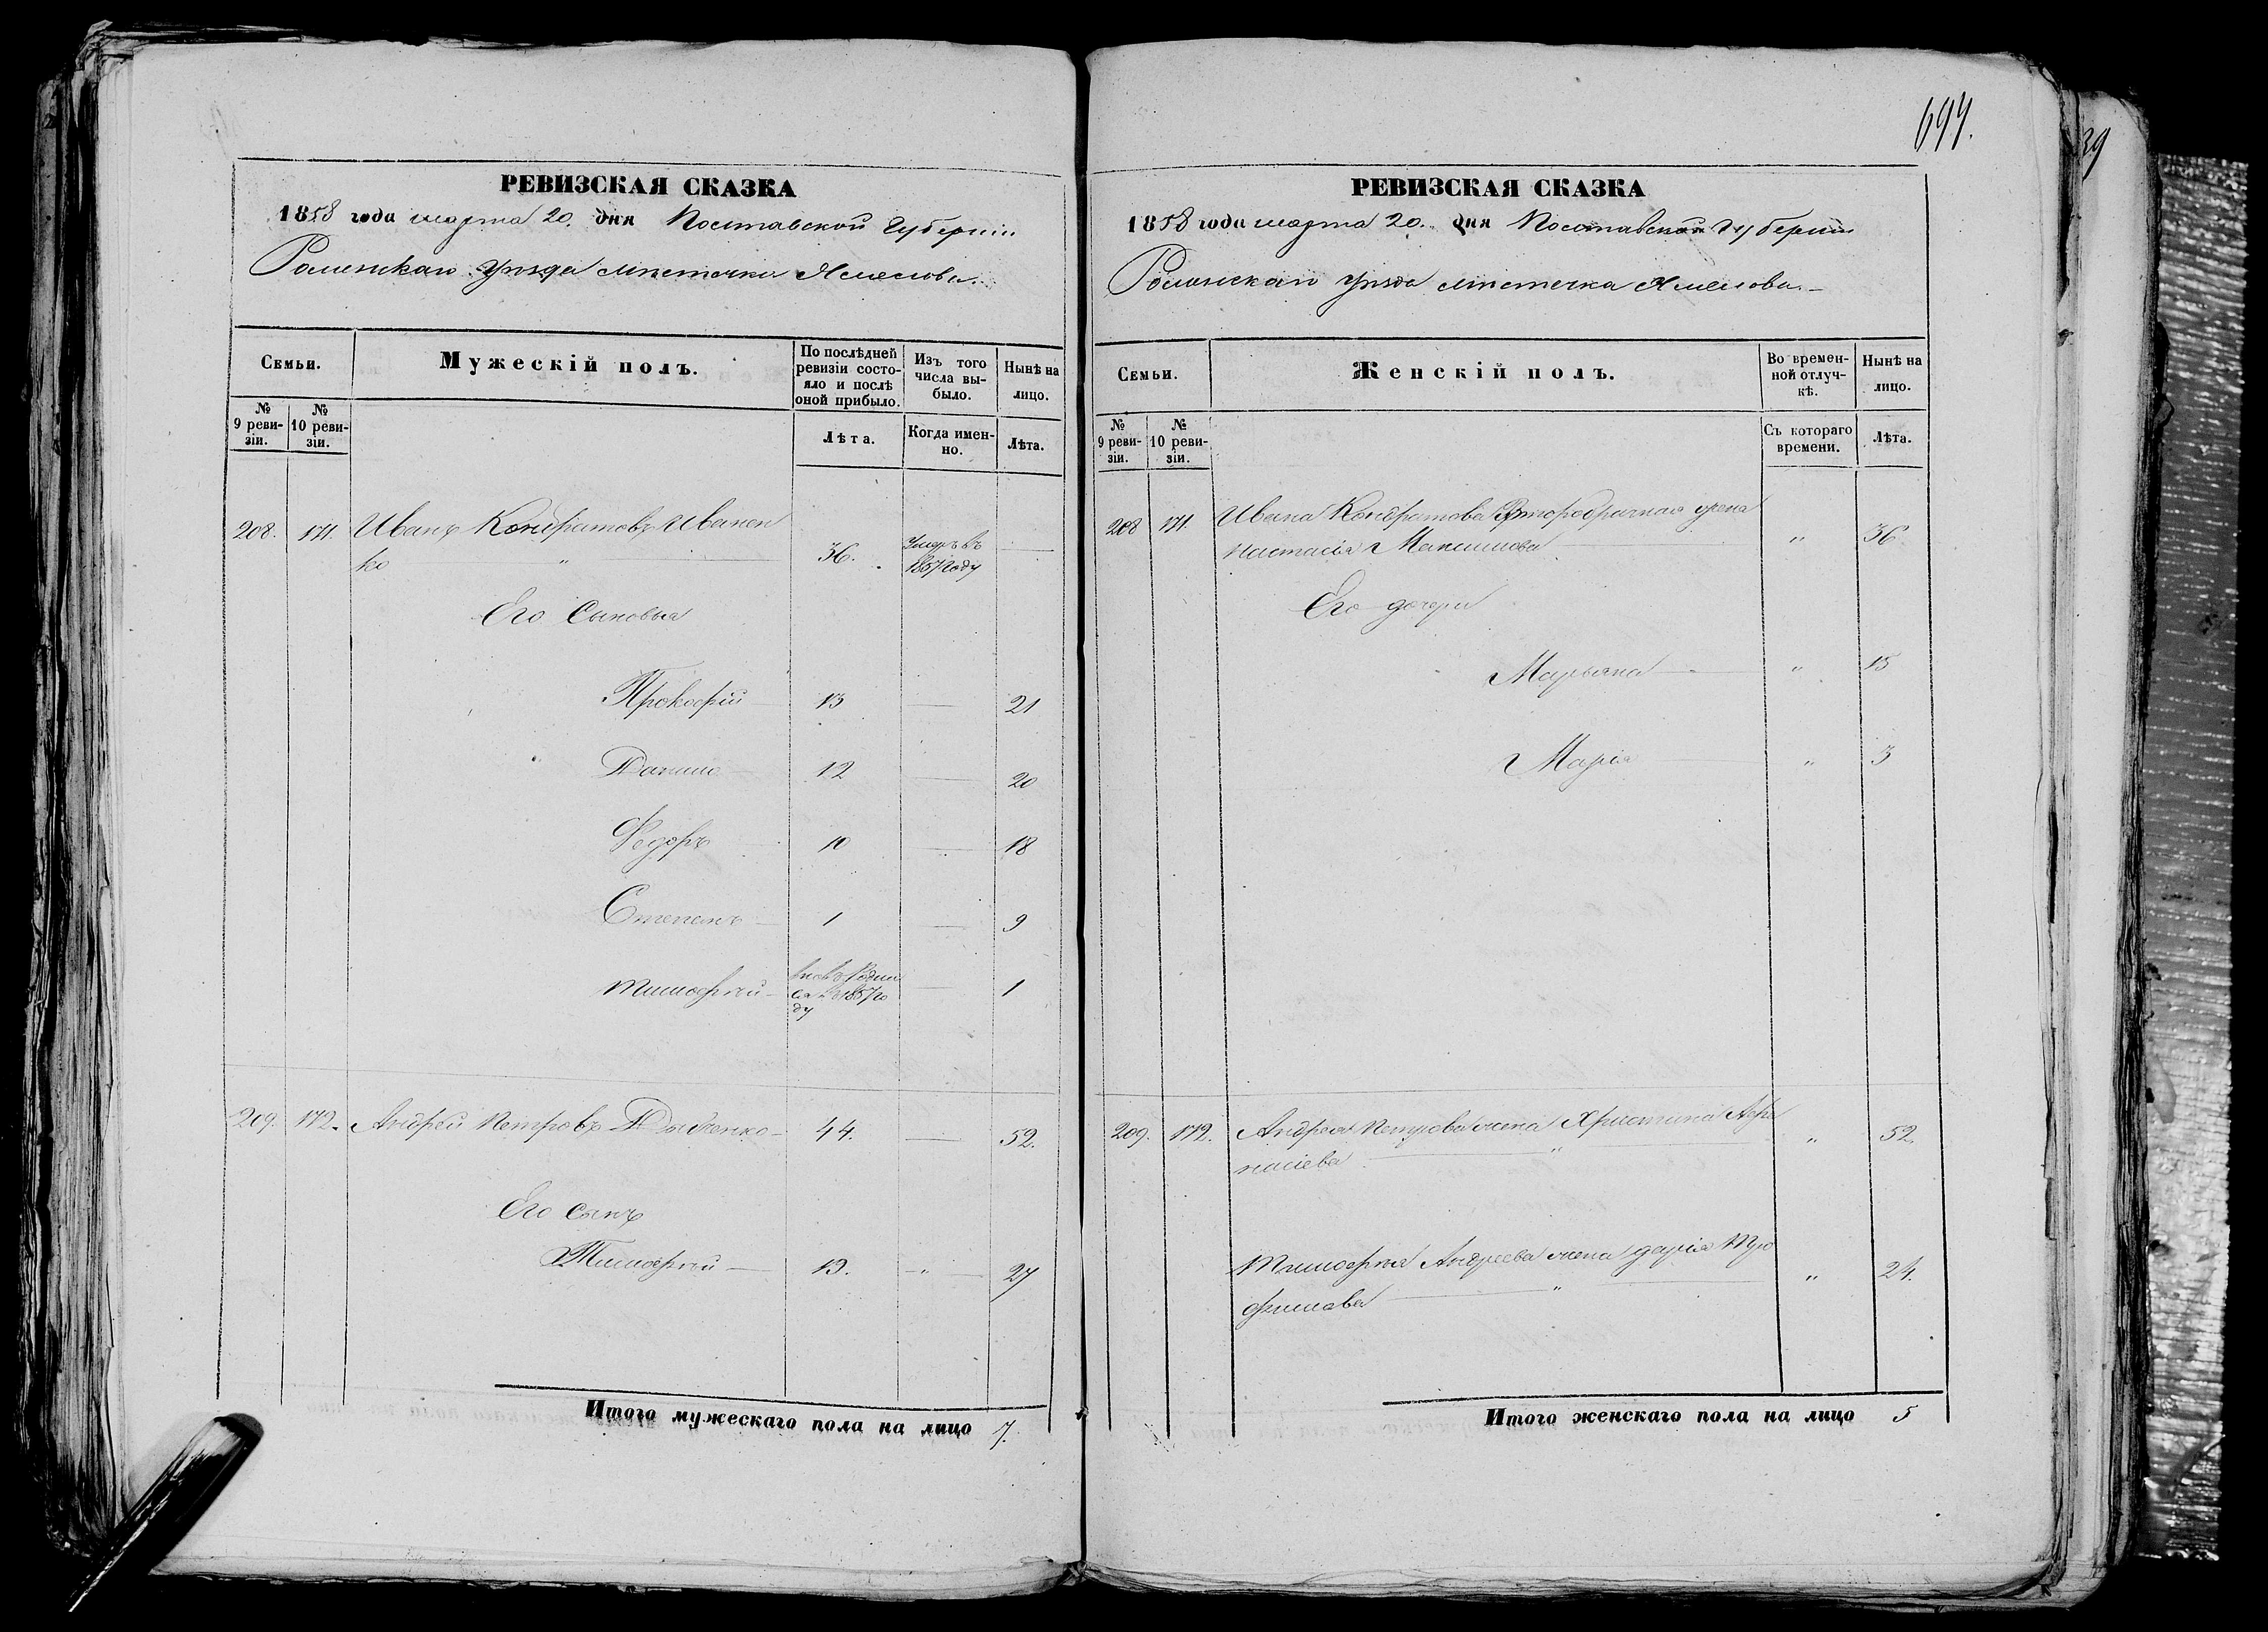 РЕВИЗСКАЯ СКАЗКА
1858 года марта 20. дня Полтавской Губерніи
Роменскаго Уѣзда мѣстечка Хмелова.
Семьи.
Мужескій полъ.
По послѣдней ревизіи состояло и послѣ оной прибыло.
Изъ того числа выбыло.
Нынѣ на лицо.
№ 9 ревизіи.
№ 10 ревизіи.
Лѣта.
Когда именно.
Лѣта.
208. 171. Иванъ Кондратовъ Иванен
ко " 36. Умеръ въ 1857 году —
Его Сыновья
Прокофій 13 — 21
Данило 12 — 20
Федоръ 10 — 18
Степанъ 1 — 9
Тимофѣй вновь родил
ся въ 1857 го
ду — 1
209. 172. Андрей Петровъ 44. — 52.
Его сынъ
Тимофѣй 19. " 27
Итого мужескаго пола на лицо 7.
694.
РЕВИЗСКАЯ СКАЗКА
1858 года марта 20. дня Полтавской Губерніи
Роменскаго Уѣзда мѣстечка Хмелова.
Семьи.
Женскій полъ.
Во временной отлучкѣ.
Нынѣ на лицо.
№ 9 ревизіи.
№ 10 ревизіи.
Съ котораго времени.
Лѣта.
208 171. Ивана Кондратова второбрачная жена
Настасія Максимова " 36
Его дочери
Марьяна " 15
Марія " 3
209. 172. Андрея Петрова жена Христина Афа
насіева " 52.
Тимофѣя Андреева жена Дарія Тро
фимова " 24.
Итого женскаго пола на лицо 5
39